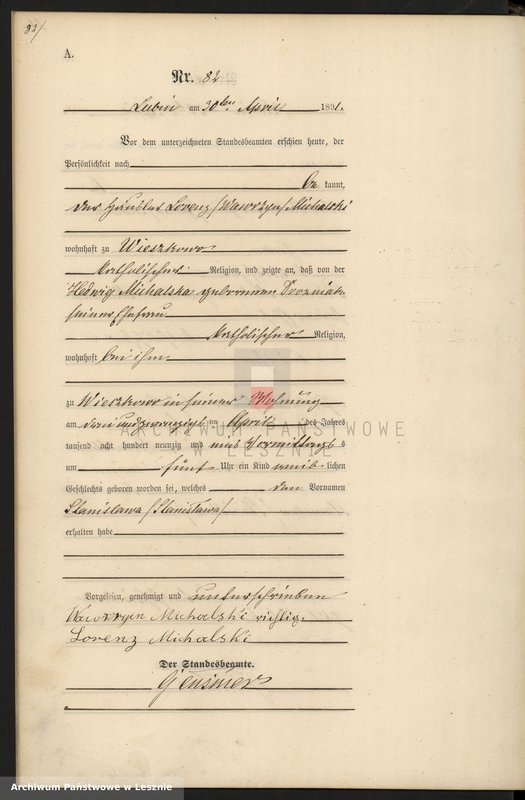 82/
A.
Nr. 82
Lubin am 30ten April 1891.
Vor dem unterzeichneten Standesbeamten erschien heute, der
Persönlichkeit nach
be kannt,
der Häusler Lorenz /Wawrzyn/ Michalski
wohnhaft zu Wieszkowo
katholischer Religion, und zeigte an, daß von der
Hedwig Michalska geborenen
seiner Ehefrau
katholischer Religion,
wohnhaft bei ihm
zu Wieszkowo in seiner Wohnung
am dreiundzwanzigsten April des Jahres
tausend acht hundert neunzig und eins Vormittags
um fünf Uhr ein Kind weib lichen
Geschlechts geboren worden sei, welches den Vornamen
Stanislawa /Stanisława/
erhalten habe
Vorgelesen, genehmigt und unterschrieben
Wawrzyn Michalski richtig.
Lorenz Michalski
Der Standesbeamte.
Gensmer
ARCHIWUM PAŃSTWOWE
W LESZNIE
Archiwum Państwowe w Lesznie